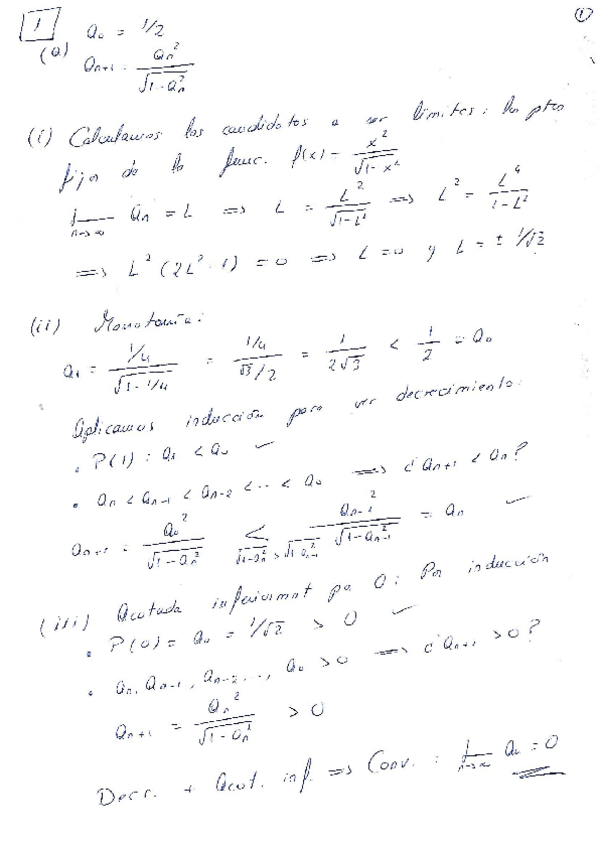 1
①
(a) a₀ = 1/2
aₙ₊₁ = aₙ² / √(1-aₙ²)
(i) Calculamos los candidatos a ser límites: los ptos
fijos de la func. f(x) = x² / √(1-x²)
lim n→∞ aₙ = L ⟹ L = L² / √(1-L²) ⟹ L² = L⁴ / (1-L²)
⟹ L² (2L²-1) = 0 ⟹ L = 0 y L = ± 1/√2
(ii) Monotonía:
a₁ = (1/4) / √(1-1/4) = (1/4) / (√3/2) = 1 / (2√3) < 1/2 = a₀
Aplicamos inducción para ver decrecimiento:
• P(1): a₁ < a₀ ✓
• aₙ < aₙ₋₁ < aₙ₋₂ < ... < a₀ ⟹ ¿ aₙ₊₁ < aₙ?
aₙ₊₁ = aₙ² / √(1-aₙ²) < aₙ₋₁² / √(1-aₙ₋₁²) = aₙ ✓
√(1-aₙ²) > √(1-aₙ₋₁²)
(iii) Acotada inferiormnt por 0: Por inducción
• P(0) = a₀ = 1/√2 > 0 ✓
• aₙ, aₙ₋₁, aₙ₋₂, ..., a₀ > 0 ⟹ ¿ aₙ₊₁ > 0?
aₙ₊₁ = aₙ² / √(1-aₙ²) > 0
Decr. + Acot. inf. ⟹ Conv.: lim n→∞ aₙ = 0